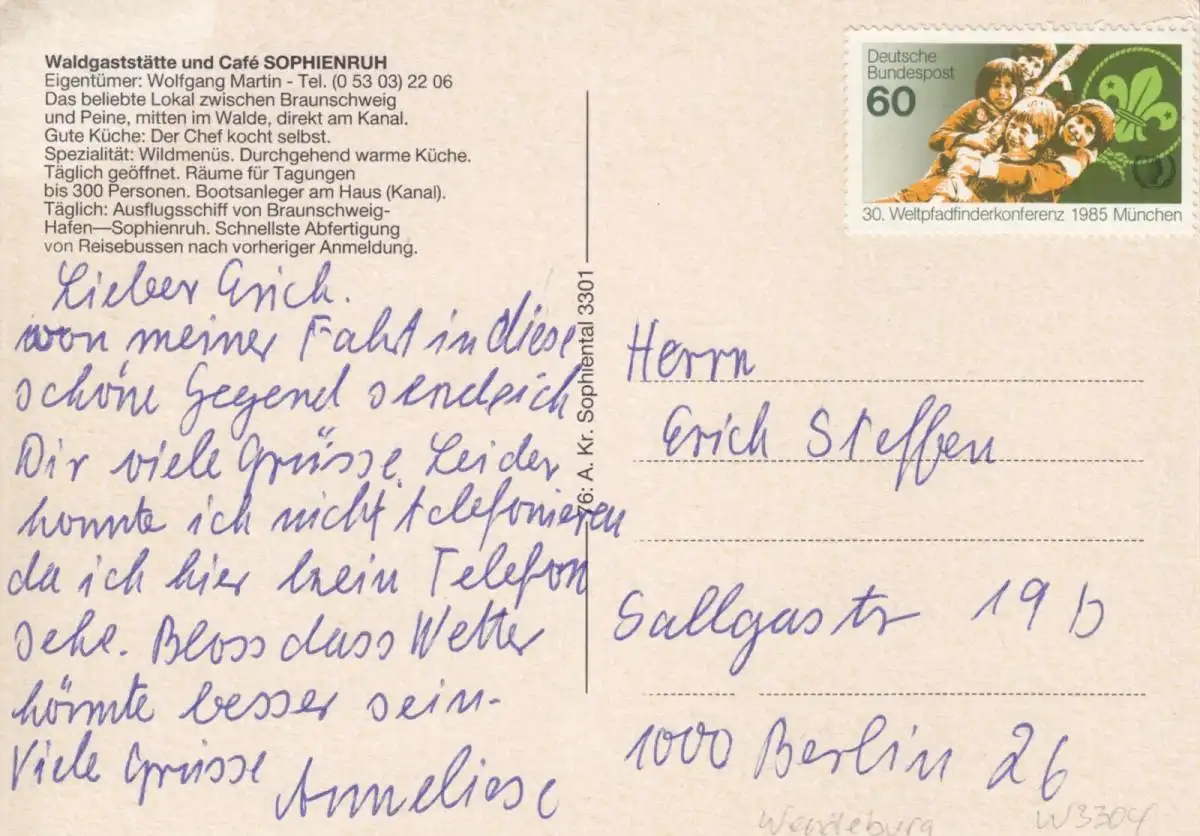 Waldgaststätte und Café SOPHIENRUH
Eigentümer: Wolfgang Martin - Tel. (0 53 03) 22 06
Das beliebte Lokal zwischen Braunschweig
und Peine, mitten im Walde, direkt am Kanal.
Gute Küche: Der Chef kocht selbst.
Spezialität: Wildmenüs. Durchgehend warme Küche.
Täglich geöffnet. Räume für Tagungen
bis 300 Personen. Bootsanleger am Haus (Kanal).
Täglich: Ausflugsschiff von Braunschweig-
Hafen—Sophienruh. Schnellste Abfertigung
von Reisebussen nach vorheriger Anmeldung.
Lieber Erich.
von meiner Fahrt in diese
schöne Gegend sende ich
Dir viele Grüsse. Leider
konnte ich nicht telefonieren
da ich hier kein Telefon
sehe. Bloss dass Wetter
könnte besser sein.
Viele Grüsse Anneliese
76: A. Kr. Sophiental 3301
Deutsche
Bundespost
60
30. Weltpfadfinderkonferenz 1985 München
Herrn
Erich Steffen
Sallgastr 19 b
1000 Berlin 26
Wendeburg W3304